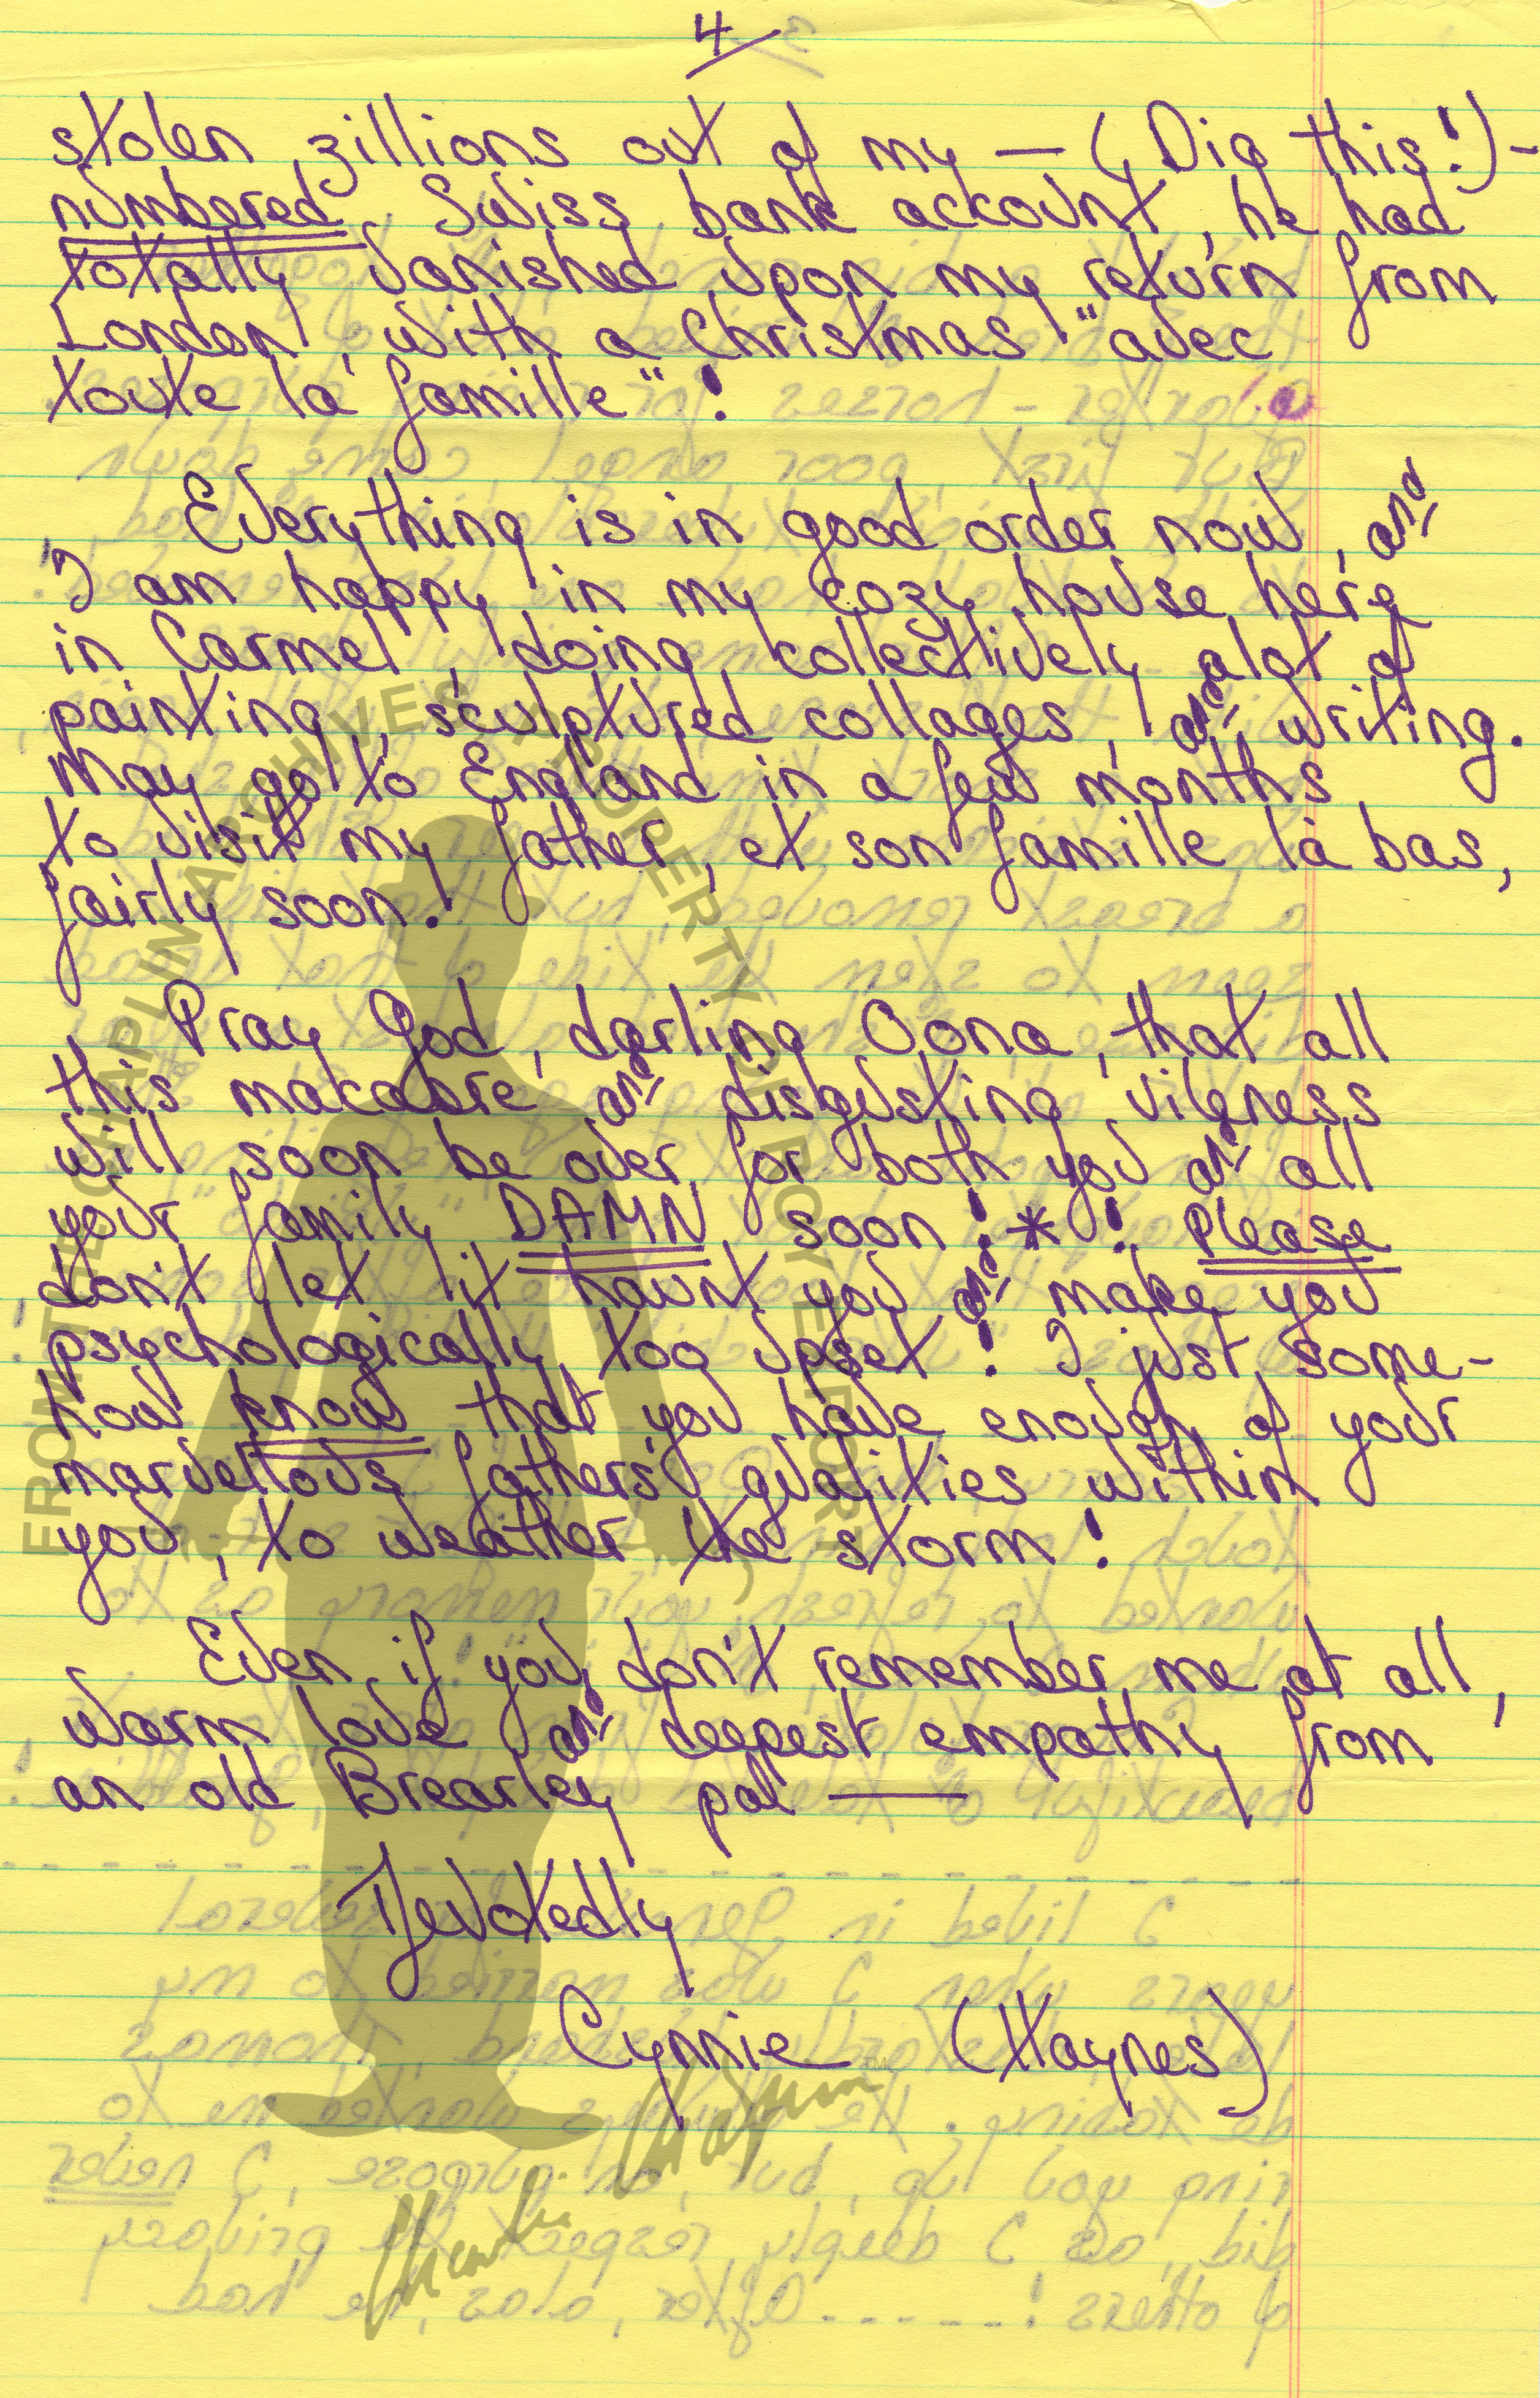 4
stolen zillions out of my — (Dig this!) -
numbered Swiss bank ackount, he had
totally vanished upon my return from
London, with a Christmas "avec
toute la famille"!
Everything is in good order now, and
I am happy in my cozy house here
in Carmel, doing collectively alot of
painting, sculptured collages, and writing.
May go to England in a few months
to visit my father, et son famille là bas,
fairly soon!
Pray God, darling Oona, that all
this macabre and disgusting vileness
will soon be over for both you and all
your family DAMN soon!*! Please
don't let it haunt you and make you
psychologically too upset! I just some-
how know that you have enough of your
marvellous fathers' qualities within
you, to weather the storm!
Even if you don't remember me at all,
warm love and deepest empathy from
an old Brearley pal —
Devotedly
Cynnie (Haynes)
FROM THE CHAPLIN ARCHIVES PROPERTY OF ROY EXPORT
Charlie Chaplin
TM